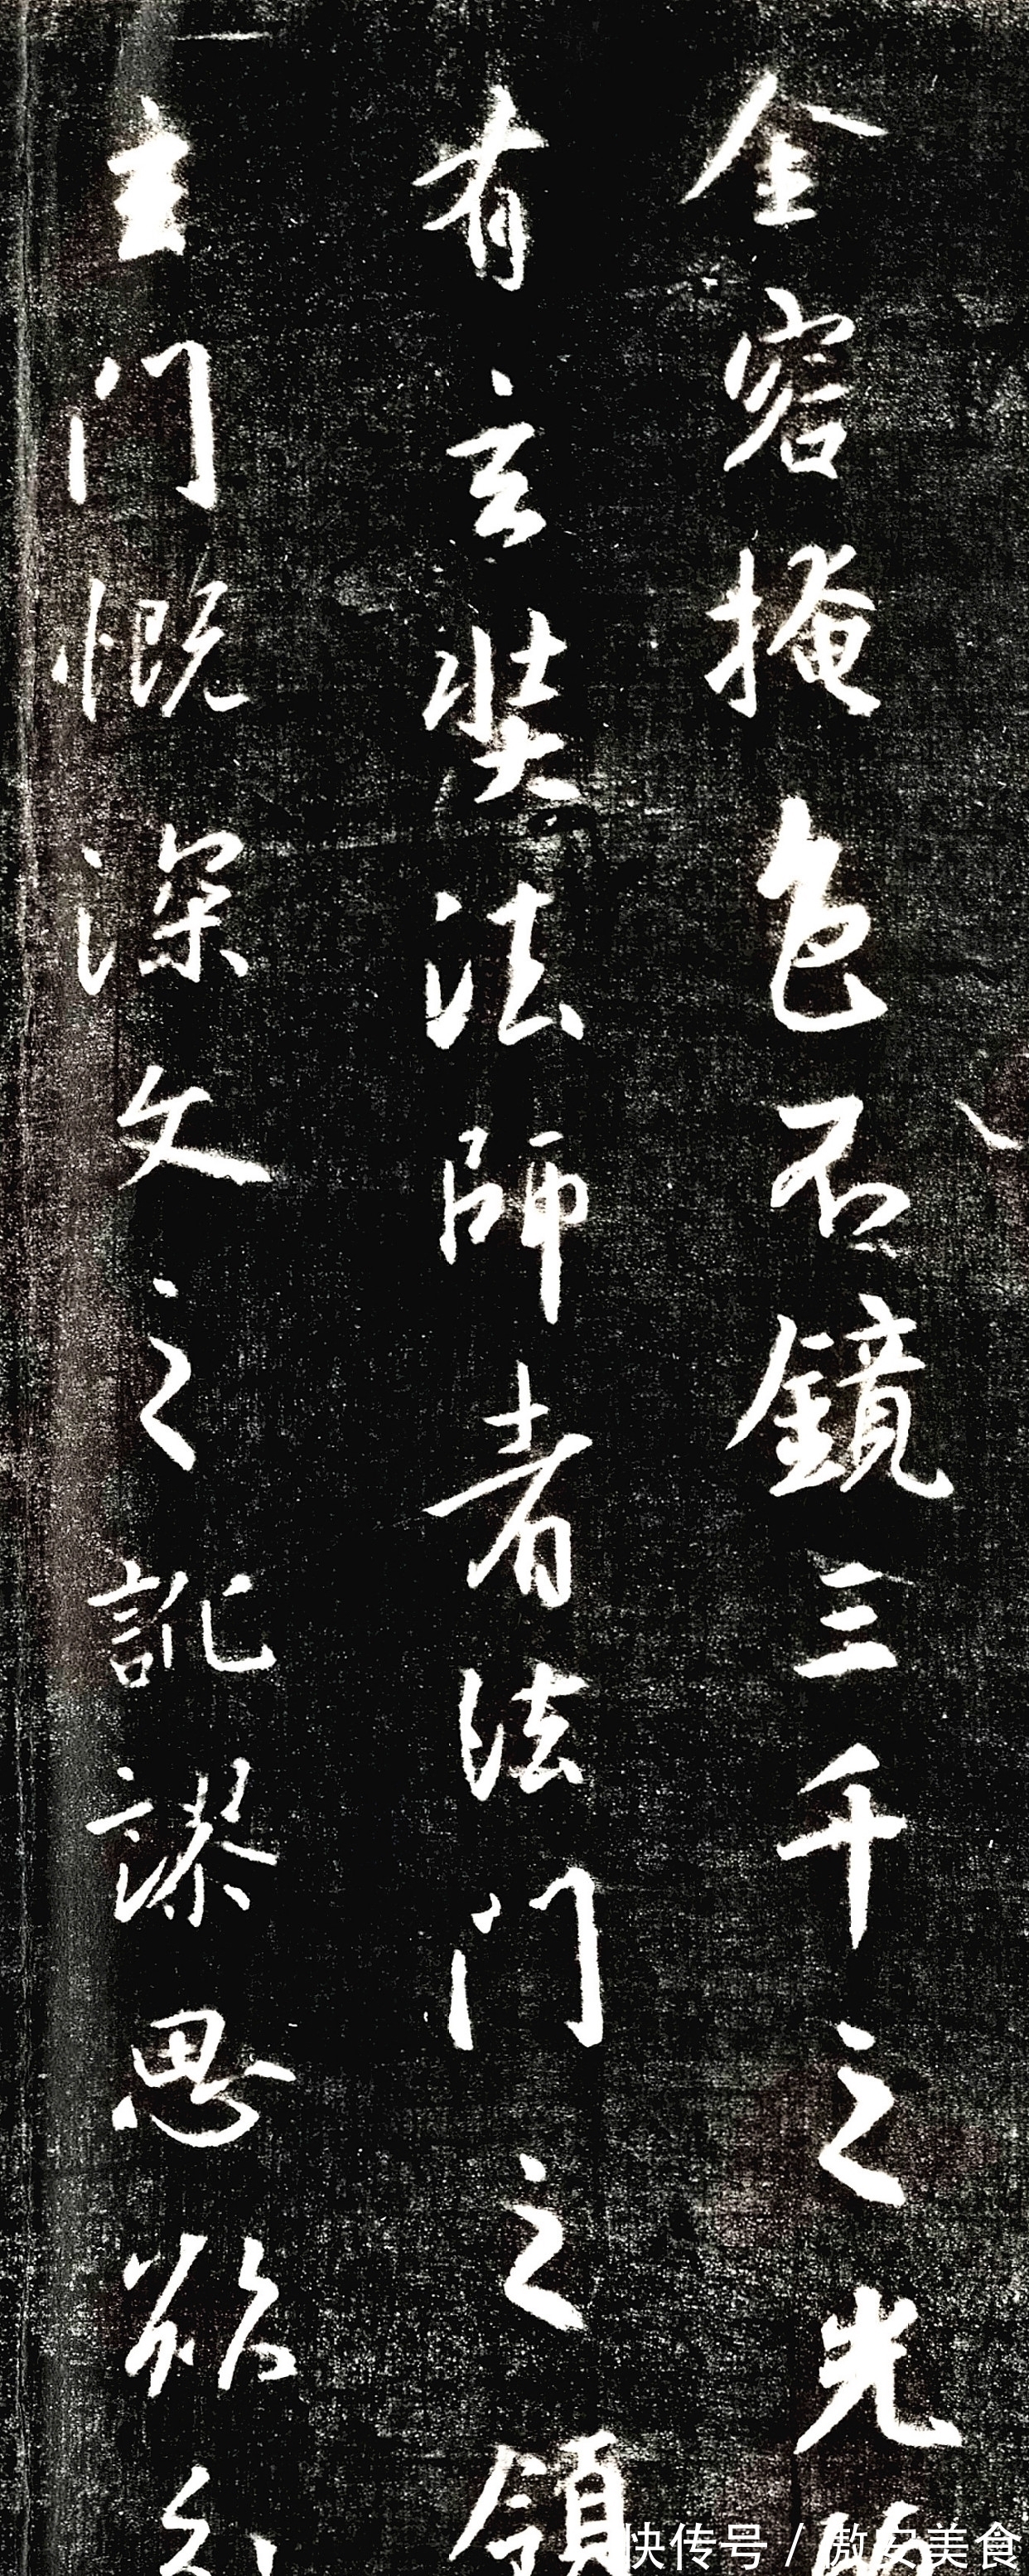 金容掩色不鏡三千之光
有玄奘法師者法門之領
玄門慨深文之訛謬思欲分
快传号 / 傲安美食